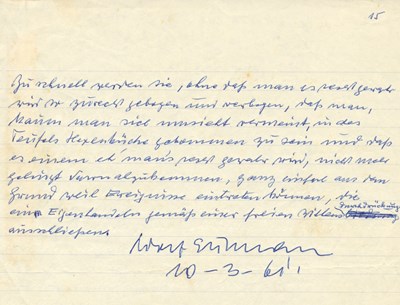 15
Zu schnell werden sie, ohne daß man es recht gewahr
wird so zurecht gebogen und verbogen, daß man,
kaum man sich umsieht vermeint, in des
Teufels Hexenküche gekommen zu sein und daß
es einem et man's recht gewahr wird, nicht mehr
gelingt davon abzukommen, ganz einfach aus dem
Grund weil Ereignisse eintraten können, die
ein Eigenhandeln gemäß einer freien Willens
ausschließen.
Adolf Eichmann
10-3-61.